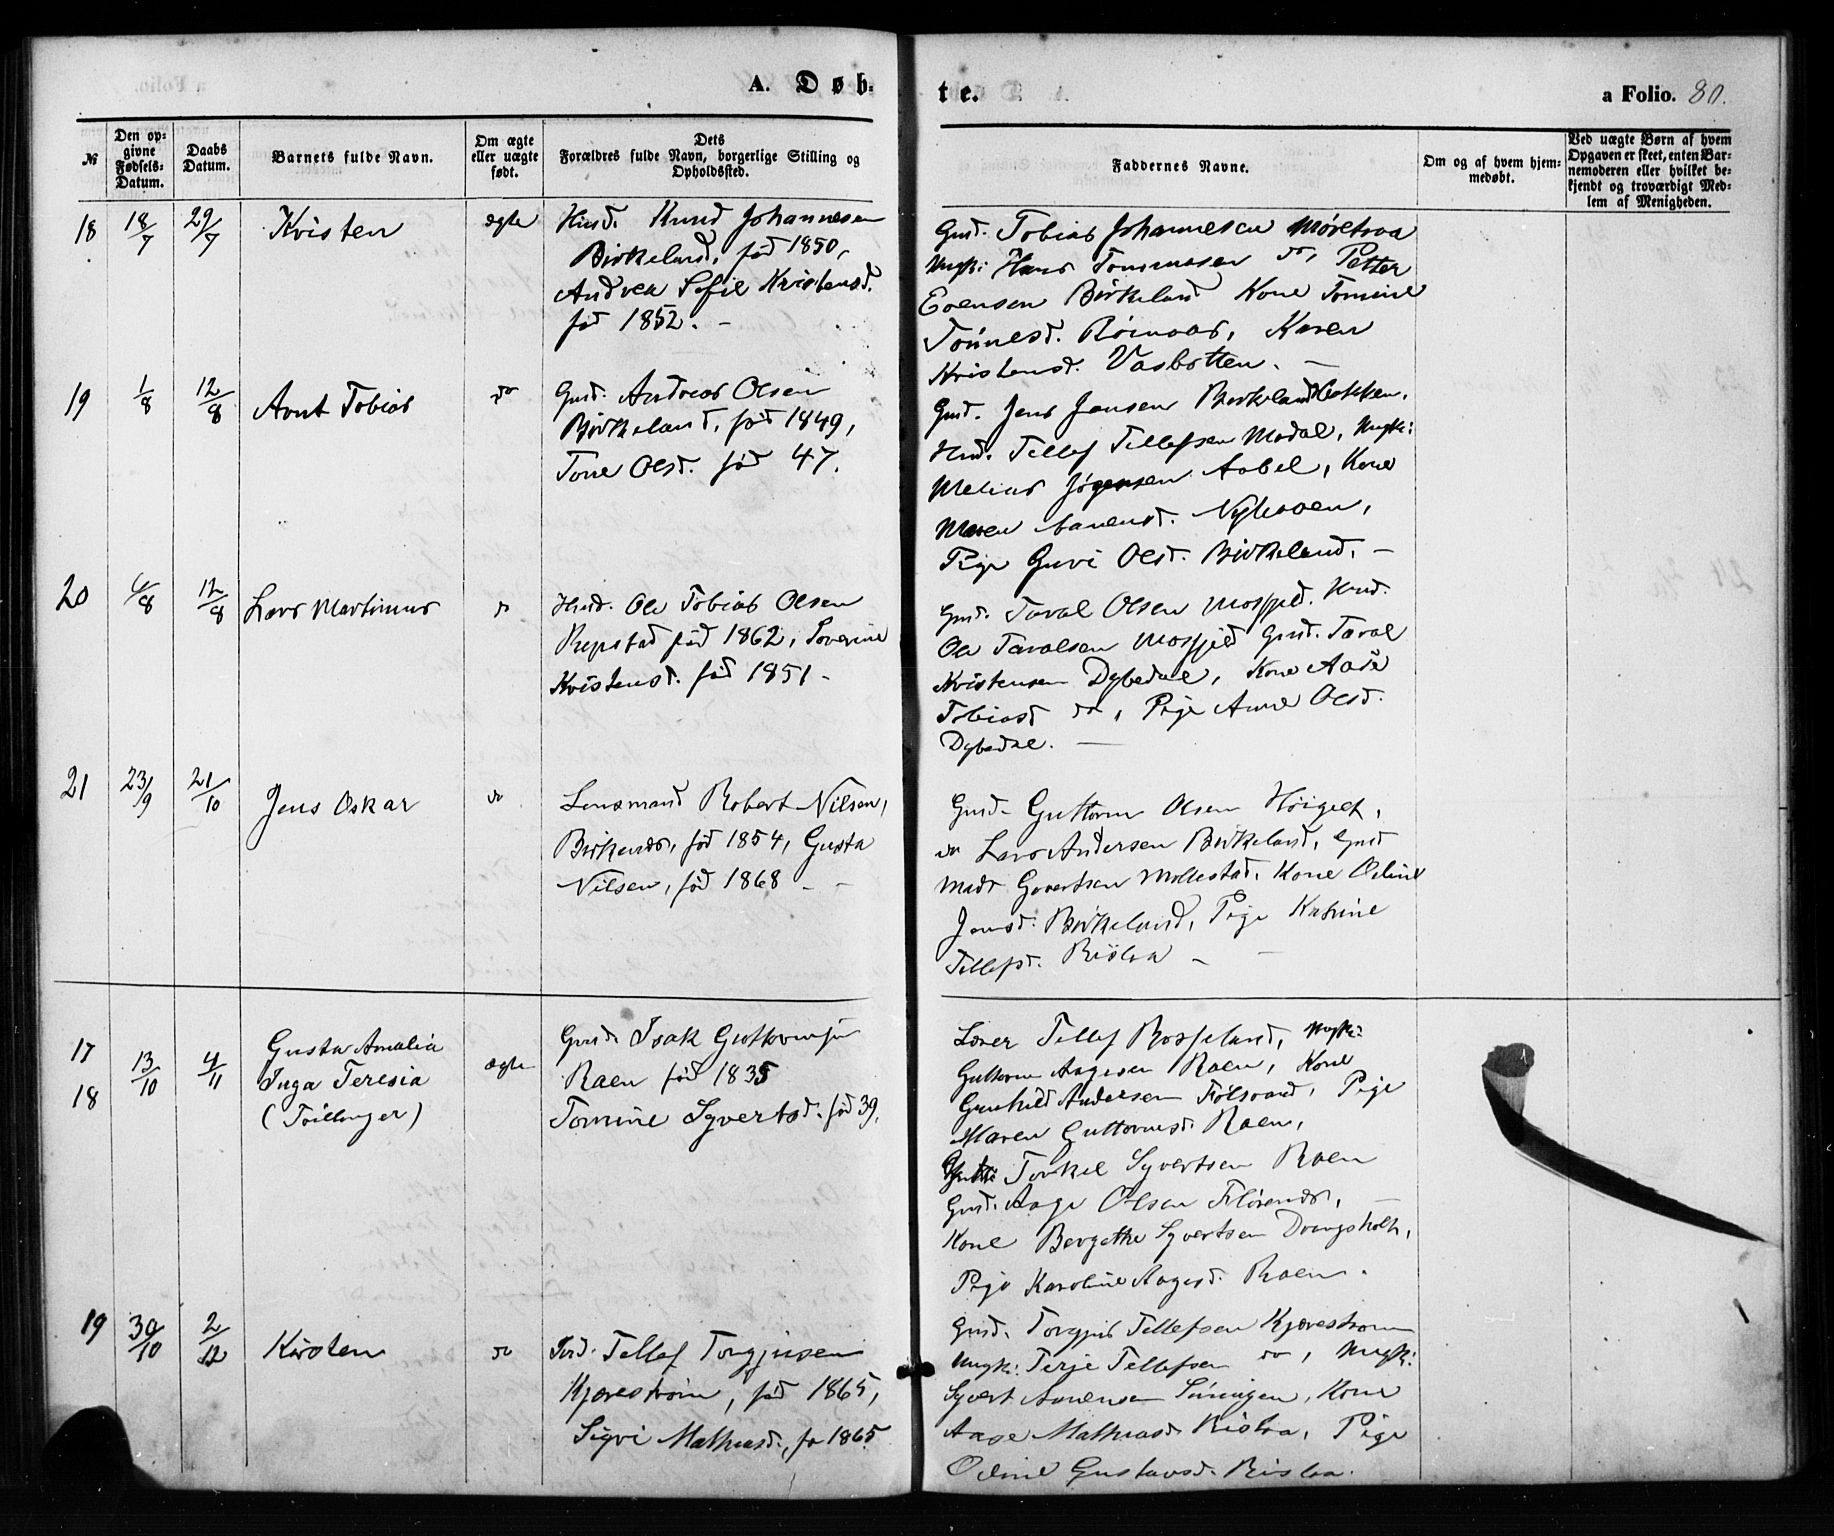 A. Døb-
te.
a Folio. 80.
№
Den op-
givne
Fødsels-
Datum.
Daabs
Datum.
Barnets fulde Navn.
Om ægte
eller uægte
født.
Dets
Forældres fulde Navn, borgerlige Stilling og
Opholdssted.
Faddernes Navne.
Om og af hvem hjem-
medøbt.
Ved uægte Børn af hvem
Opgaven er skeet, enten Bar-
nemoderen eller hvilket be-
kjendt og troværdigt Med-
lem af Menigheden.
18 18/7 29/7 Kristen ægte
Husd. Knud Johannesen
Birkeland, föd 1850,
Andrea Sofie Kristensd.
föd 1852. -
Gmd. Tobias Johannesen Møretraa
Ungk: Hans Tommasen do, Petter
Evensen Birkeland Kone Tomine
Tönnesd. Röinaas, Karen
Kristensd. Vasbotten. -
19 1/8 12/8 Arnt Tobias do
Gmd. Andreas Olsen
Birkeland, föd 1849,
Tone Olsd. föd 47.
Gmd. Jens Jensen Birkeland
Hmd. Tellef Tellefsen Modal, Ungk:
Melius Jörgensen Aabel, Kone
Maren Aanensd.
Pige Guri Olsd. Birkeland. -
20 4/8 12/8 Lars Martinus do
Husd. Ole Tobias Olsen
Repstad föd 1862, Severine
Kristensd. föd 1851 -
Gmd. Taral Olsen Mosfjeld. Husd.
Ole Taralsen Mosfjeld Gmd. Taral
Kristensen Dybedal, Kone Aase
Tobiasd do, Pige Anne Olsd.
Dybedal. -
21 23/9 21/10 Jens Oskar do
Lensmand Robert Nilsen,
Birkenes, föd 1854, Gusta
Nilsen, föd 1868 - -
Gmd. Guttorm Olsen Höigelt,
do Lars Andersen Birkeland, Gmd
Mads Govertsen Mollestad, Kone Odine
Jensd. Birkeland, Pige Katrine
Tellefsd. Risloa -
17
18
13/10 4/11
Gusta Amalia
Inga Teresia
(Tvillinger)
ægte
Gmd. Isak Guttormsen
Raen föd 1835
Tomine Syvertsd. föd 39.
Lærer Tellef Bosseland, Ungk:
Guttorm Aagesen Raen, Kone
Gunhild Andersen Fölsvand, Pige
Maren Guttormsd. Raen,
Torkel Syvertsen Raen
Gmd. Aage Olsen Flörenes, -
Kone Bergethe Syvertsen Drangsholt,
Pige Karoline Aagesd. Raen.
19 30/10 2/12 Kirsten do
Tellef Torgjusen
Kjærestrom, föd 1865,
Sigvi Mathiasd., fö 1865
Gmd. Torgjus Tellefsen Kjærestrom
Ungk: Terje Tellefsen do, Ungk:
Syvert Aanensen Kone
Aase Mathiasd Risloa, Pige
Odine Gustavsd. Risloa.